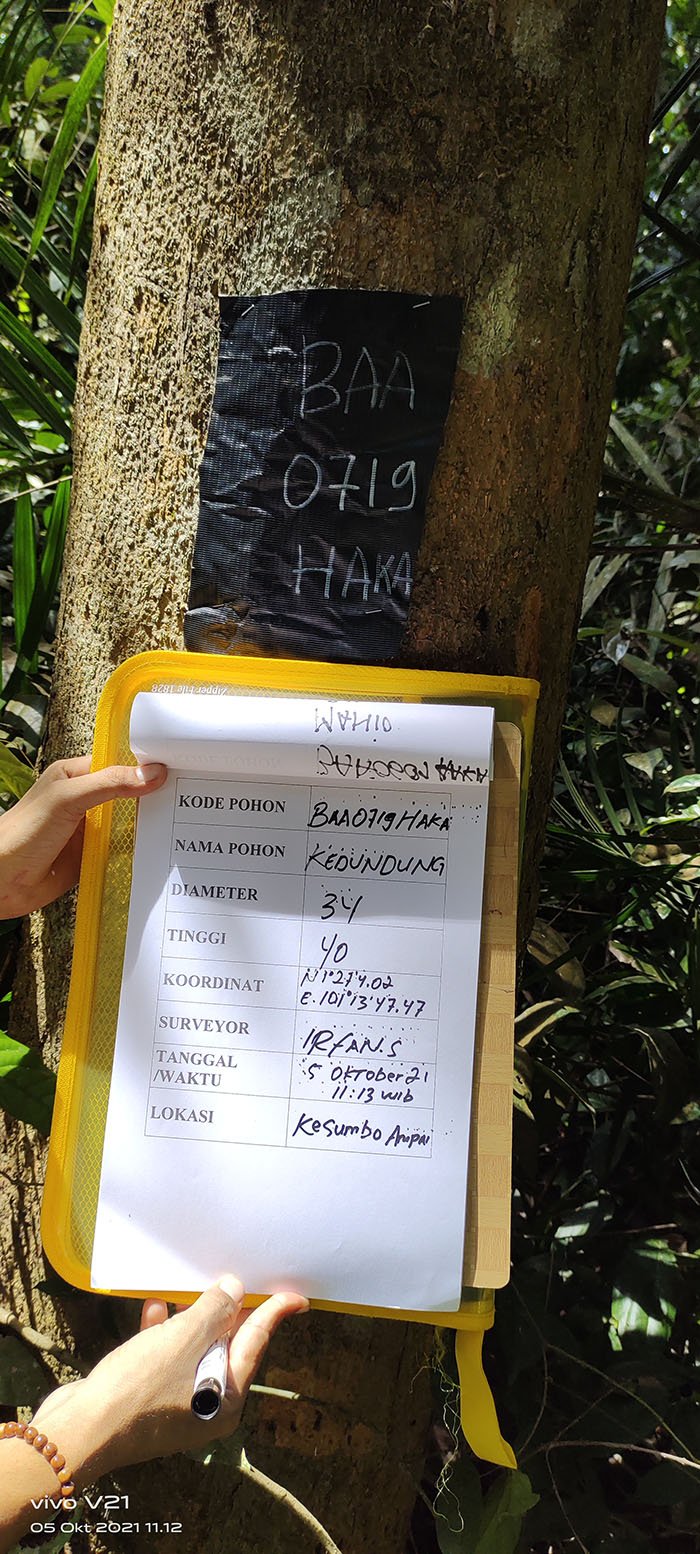 BAA
0719
HAKA
Zipper File 1828
WAHID
KODE POHON BAA0719HAKA
NAMA POHON KEDUNDUNG
DIAMETER 34
TINGGI 40
KOORDINAT N 1°27'4.02
E.101°13'47.47
SURVEYOR IRFAN.S
TANGGAL 5 Oktober 21
/WAKTU 11:13 wib
LOKASI Kesumbo Ampai
vivo V21
05 Okt 2021 11.12